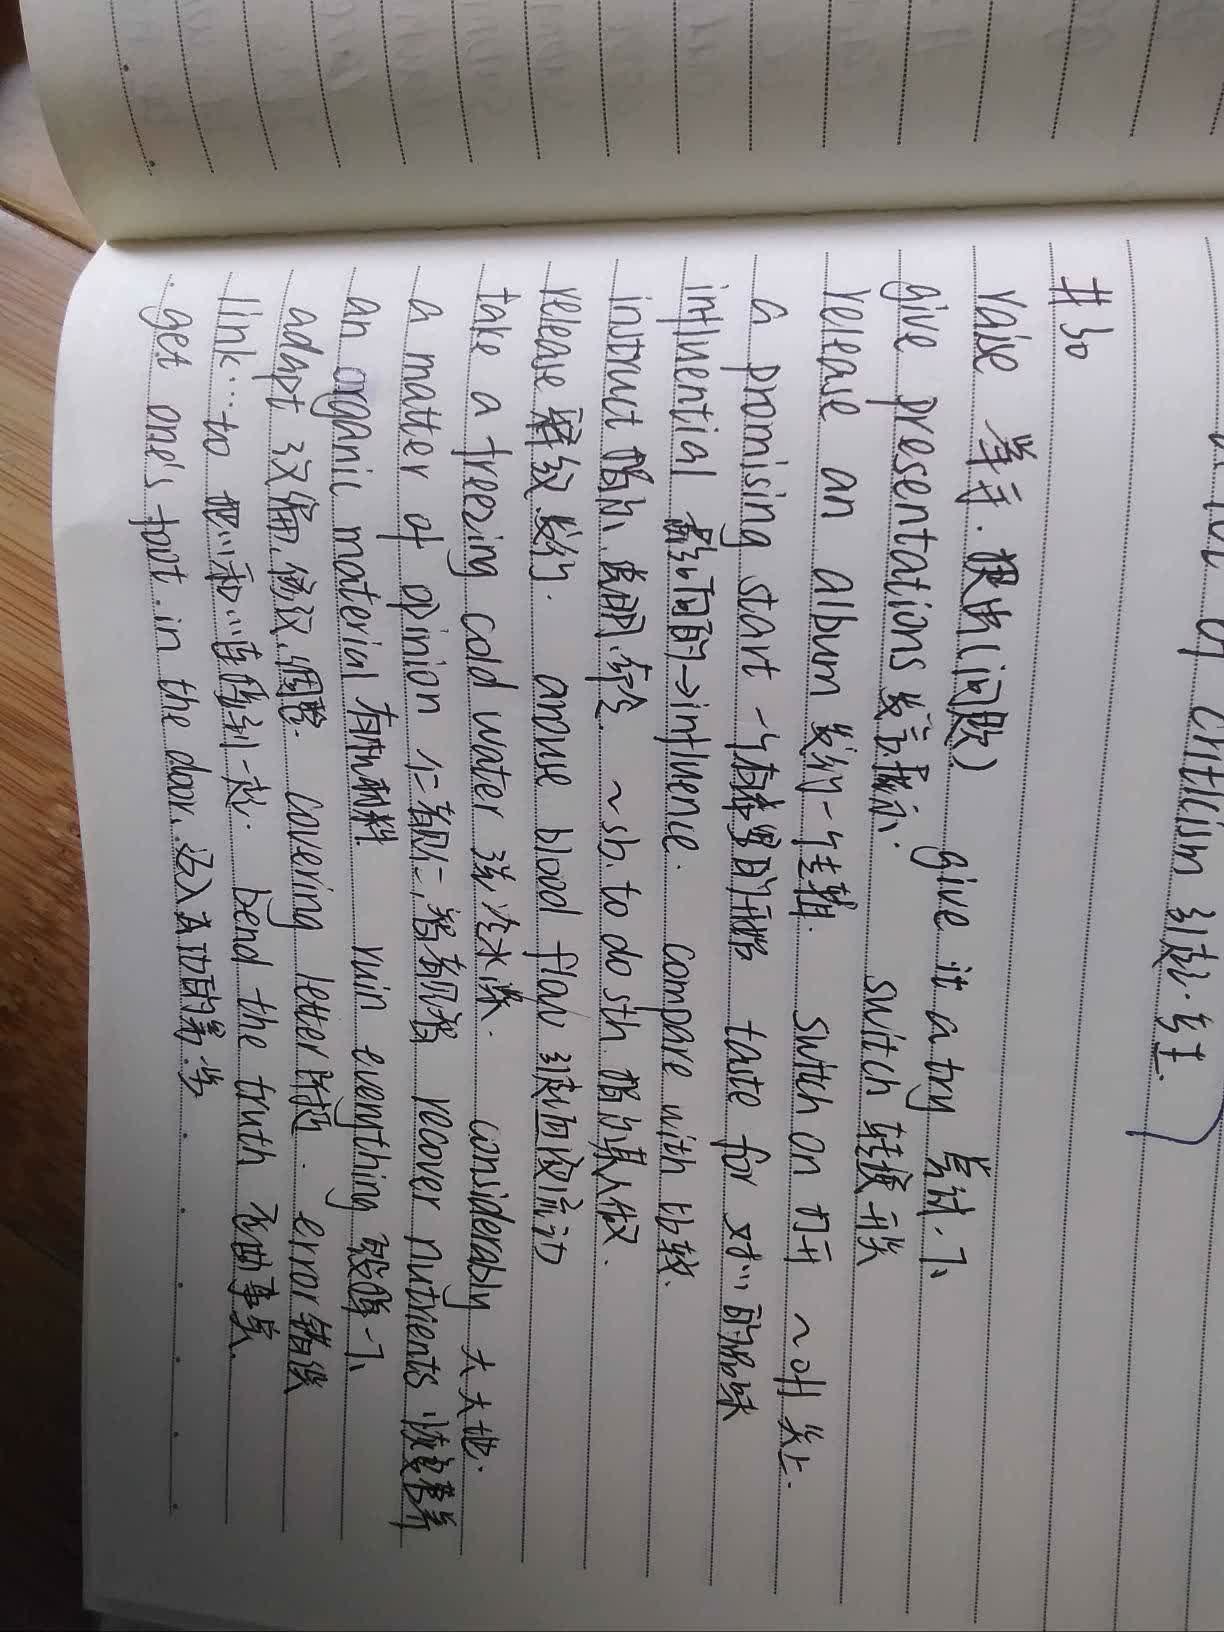 of criticism 引起.产生.
#30
raise 举手.提出(问题) give it a try 尝试一下
give presentations 发言展示. switch 转换开关
release an album 发行一个专辑. switch on 打开 ~off 关上.
a promising start 一个有希望的开始 taste for 对…的品味
influential 有影响的→influence. compare with 比较.
instruct 指示.说明.命令. ~sb. to do sth. 指示某人做.
release 释放.发行. arouse blood flow 引起血液流动
take a freezing cold water 洗冷水澡. considerably 大大地.
a matter of opinion 仁者见仁,智者见智 recover nutrients 恢复营养
an organic material 有机材料 ruin everything 毁掉一切
adapt 改编.修改.调整. covering letter 附函. error 错误
link…to 把…和…连接到一起. bend the truth 歪曲事实.
get one's foot in the door. 迈入成功的第一步